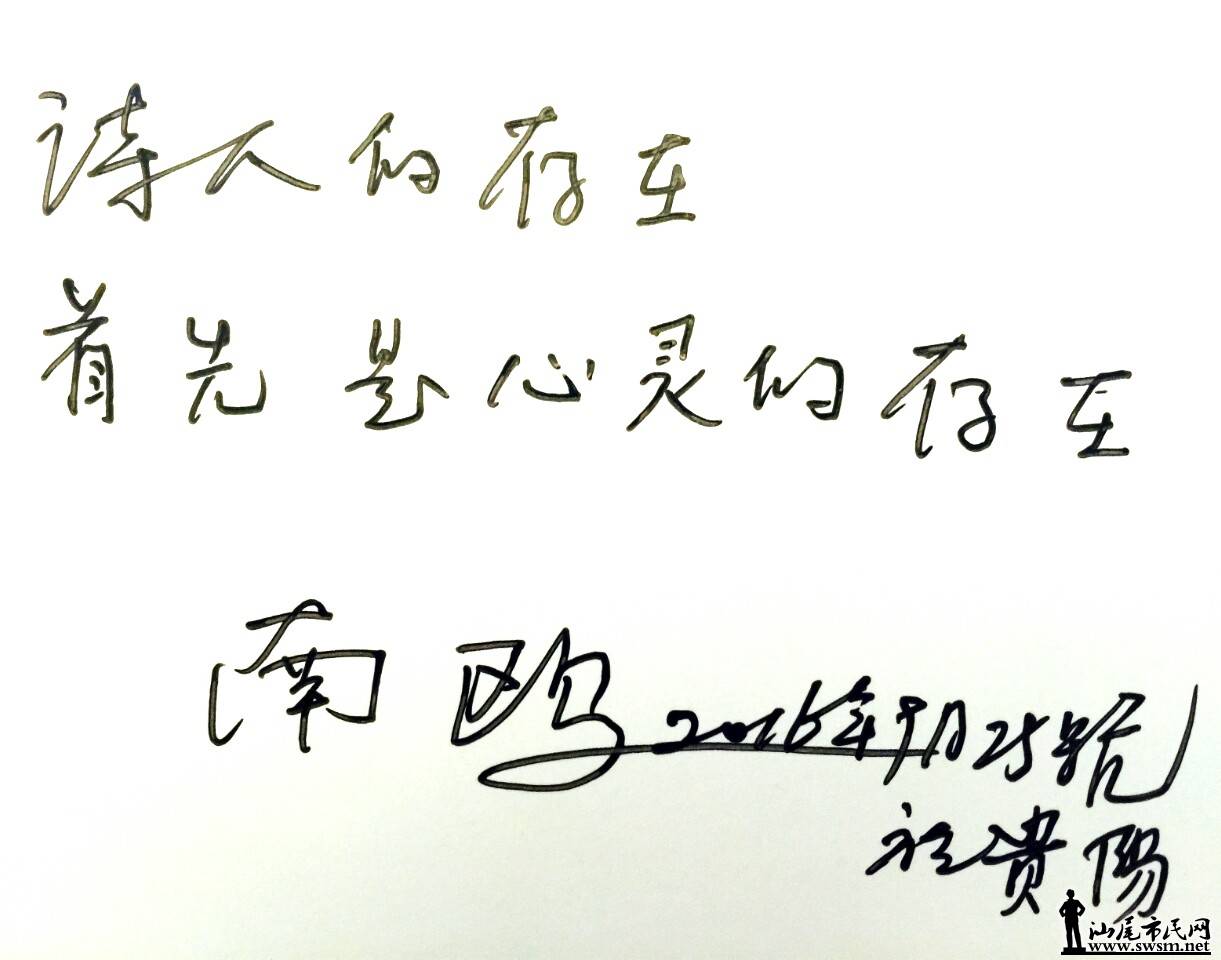 诗人的存在
首先是心灵的存在
南鸥 2016年9月25號
於貴陽
汕尾市民网
www.swsm.net